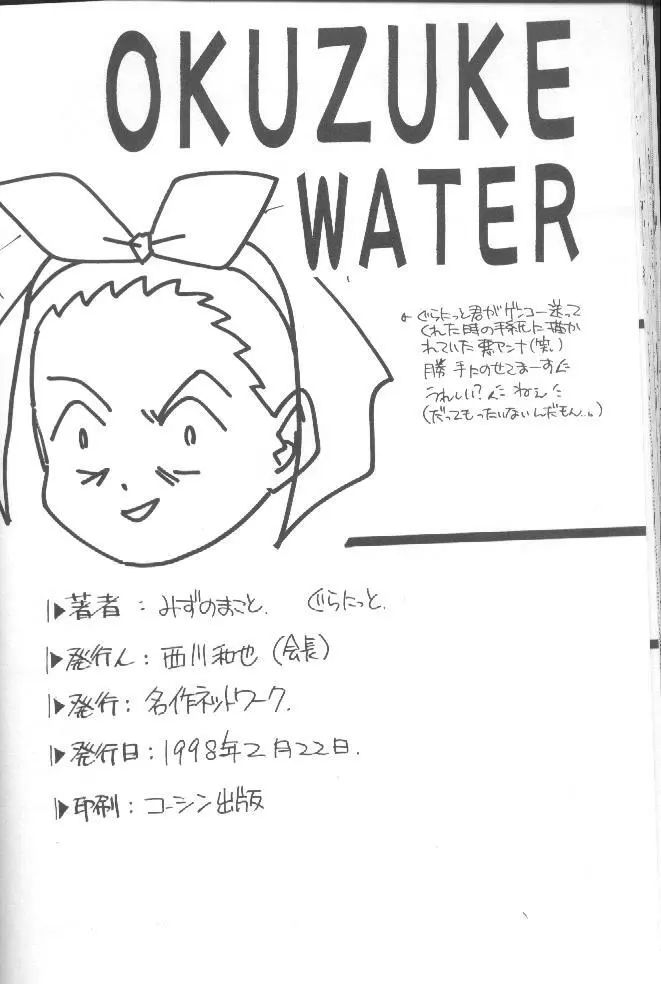 OKUZUKE
WATER
← ぐらにっと君がゲンコー送って
くれた時の手紙に描か
れていた悪アンナ(笑)
勝手にのせてまーすだ
うれしい? だ ねぇだ
(だってもったいないんだもん…。)
▶著者：みずのまこと. ぐらにっと.
▶発行人：西川和也(会長)
▶発行：名作ネットワーク.
▶発行日：1998年2月22日.
▶印刷：コーシン出版